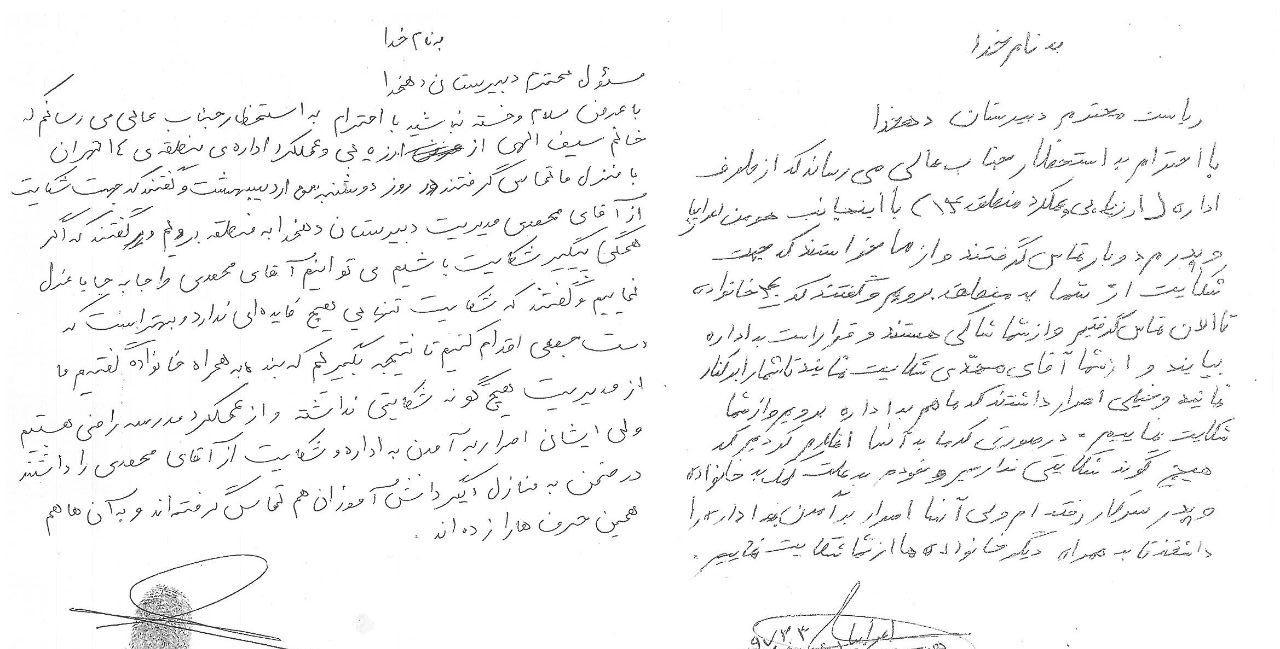 به نام خدا
ریاست محترم دبیرستان دهخدا
با احترام به استحضار جناب عالی می رساند که از طرف
اداره (ارزیابی و عملکرد منطقه ۱۴) با اینجانب
و پدرم دوبار تماس گرفتند و از ما خواستند که جهت
شکایت از شما به منطقه برویم و گفتند که خانواده
تا الان تماس گرفتیم و از شما شاکی هستند و قرار است به اداره
بیایند و از شما آقای محمدی شکایت نمایند تا شما را برکنار
نمایند و خیلی اصرار داشتند که ما هم به اداره برویم و از شما
شکایت نماییم. در صورتی که ما به آنها اعلام کردیم که
هیچ گونه شکایتی نداریم و خودم به علت کمک به خانواده
و پدر سرکار رفته ام ولی آنها اصرار به آمدن به اداره را
داشتند تا به همراه دیگر خانواده ها از شما شکایت نماییم.
۹۷۳۳
به نام خدا
مسئول محترم دبیرستان دهخدا
با عرض سلام و خسته نباشید با احترام به استحضار جناب عالی می رسانم که
خانم سیف الهی از ارزیابی و عملکرد اداره ی منطقه ی ۱۴ تهران
با منزل ما تماس گرفتند در روز دوشنبه اردیبهشت و گفتند که جهت شکایت
از آقای محمدی مدیریت دبیرستان دهخدا به منطقه برویم و گفتند که اگر
همگی پیگیر شکایت باشیم می توانیم آقای محمدی را جا به جا یا عزل
نماییم و گفتند که شکایت تنهایی هیچ فایده ای ندارد و بهتر است که
دست جمعی اقدام کنیم تا نتیجه بگیریم که بنده به همراه خانواده گفتیم ما
از مدیریت هیچ گونه شکایتی نداشته و از عملکرد مدرسه راضی هستیم
ولی ایشان اصرار به آمدن به اداره و شکایت از آقای محمدی را داشتند
در ضمن به منازل دیگر دانش آموزان هم تماس گرفته اند و به آن ها هم
همین حرف ها را زده اند.